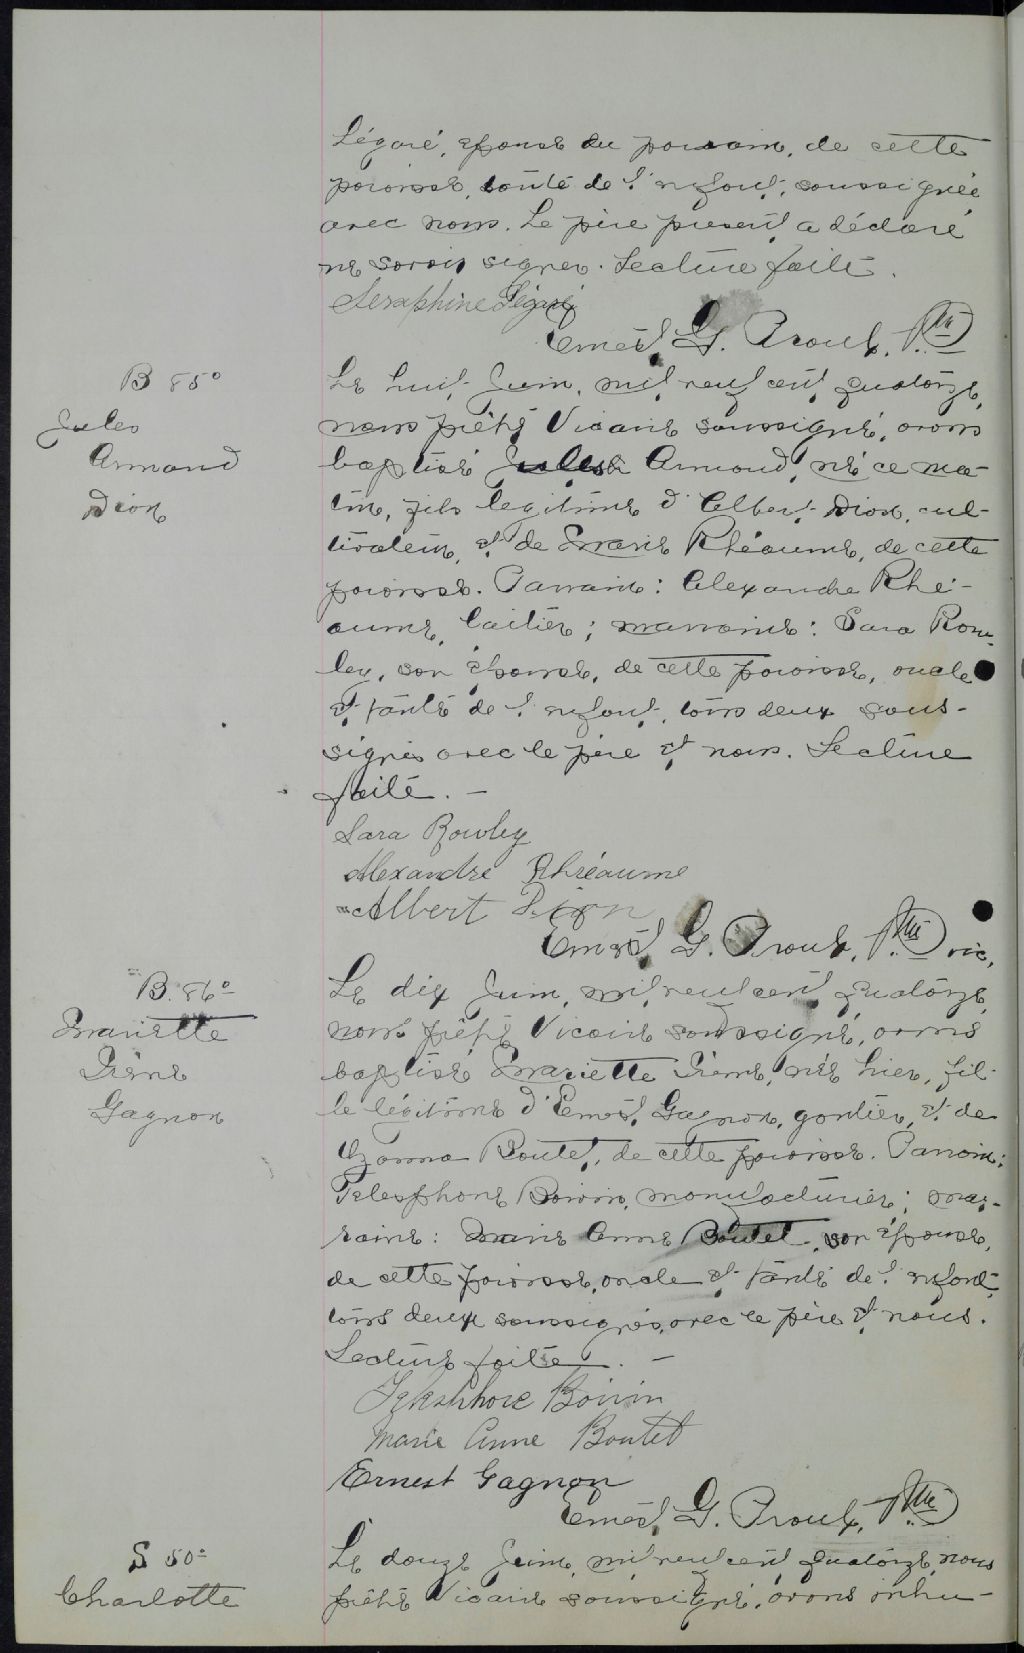 Légaré, épouse du parrain, de cette
paroisse, tante de l'enfant, soussignée
avec nous. Le père présent a déclaré
ne savoir signer. Lecture faite.
Seraphine Légaré
Ernest G. Proulx, Ptre
B 85°
Jules
Armand
Dion
Le huit Juin, mil neuf cent quatorze,
nous prêtre Vicaire soussigné, avons
baptisé Jules Armand, né ce ma-
tin, fils légitime d'Albert Dion, cul-
tivateur, et de Marie Rhéaume, de cette
paroisse. Parrain: Alexandre Rhé-
aume, laitier; marraine: Sara Row-
ley, son épouse, de cette paroisse, oncle
et tante de l'enfant, tous deux sous-
signés avec le père et nous. Lecture
faite. –
Sara Rowley
Alexandre Rhéaume
Albert Dion
Ernest G. Proulx, Ptre vic.
B. 86°
Mariette
Irène
Gagnon
Le dix Juin, mil neuf cent quatorze,
nous prêtre Vicaire soussigné, avons
baptisé Mariette Irène, née hier, fil-
le légitime d'Ernest Gagnon, gantier, et de
Boutet, de cette paroisse. Parrain:
Telesphore Boivin, manufacturier; mar-
raine: Marie Anne Boutet, son épouse,
de cette paroisse, oncle et tante de l'enfant,
tous deux soussignés avec le père et nous.
Lecture faite. –
Telesphore Boivin
Marie Anne Boutet
Ernest Gagnon
Ernest G. Proulx, Ptre
S 50°
Charlotte
Le douze Juin, mil neuf cent quatorze, nous
prêtre Vicaire soussigné, avons inhu-